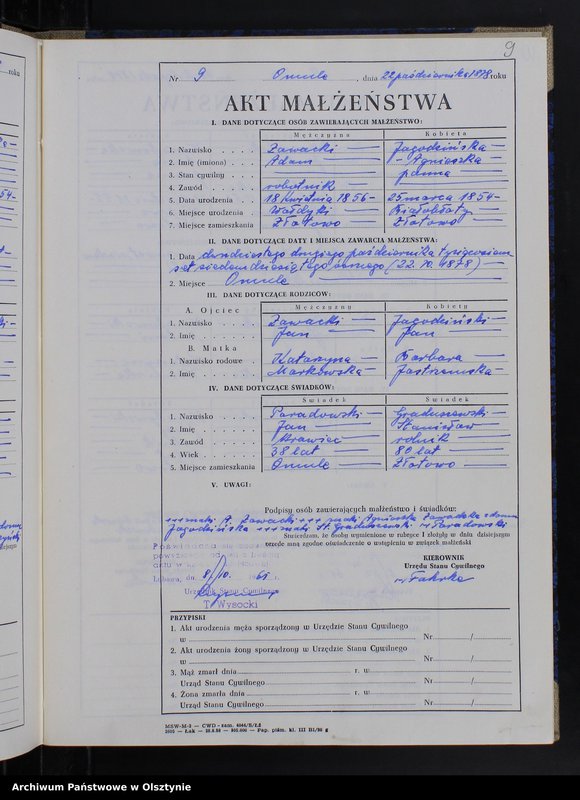 9
Nr. 9 Omule, dnia 22 października 1878 roku
AKT MAŁŻEŃSTWA
I. DANE DOTYCZĄCE OSÓB ZAWIERAJĄCYCH MAŁŻEŃSTWO:
Mężczyzna Kobieta
1. Nazwisko Zawacki Jagodzińska
2. Imię (imiona) Adam Agnieszka
3. Stan cywilny panna
4. Zawód robotnik
5. Data urodzenia 18 kwietnia 1856 25 marca 1854
6. Miejsce urodzenia Wałdyki Białobłoty
7. Miejsce zamieszkania Złotowo Złotowo
II. DANE DOTYCZĄCE DATY I MIEJSCA ZAWARCIA MAŁŻEŃSTWA:
1. Data dwudziestego drugiego października tysiąc osiem
set siedemdziesiątego ósmego (22.10.1878)
2. Miejsce Omule
III. DANE DOTYCZĄCE RODZICÓW:
Mężczyzny Kobiety
A. Ojciec
1. Nazwisko Zawacki Jagodziński
2. Imię Jan Jan
B. Matka
1. Nazwisko rodowe Katarzyna Barbara
2. Imię Markowska Jastrzemska
IV. DANE DOTYCZĄCE ŚWIADKÓW:
Świadek Świadek
1. Nazwisko Paradowski Graduszewski
2. Imię Jan Stanisław
3. Zawód krawiec rolnik
4. Wiek 38 lat 80 lat
5. Miejsce zamieszkania Omule Złotowo
V. UWAGI:
Podpisy osób zawierających małżeństwo i świadków:
+++ znaki A. Zawacki +++ znaki Agnieszka Zawadzka z domu
Jagodzińska +++ znaki St. Graduszewski Paradowski
Stwierdzam, że osoby wymienione w rubryce I złożyły w dniu dzisiejszym
przede mną zgodne oświadczenie o wstąpieniu w związek małżeński
KIEROWNIK
Urzędu Stanu Cywilnego
Lubawa, dn. 8/10. 1965 r.
Urzędnik Stanu Cywilnego
T. Wysocki
PRZYPISKI
1. Akt urodzenia męża sporządzony w Urzędzie Stanu Cywilnego
w Nr /
2. Akt urodzenia żony sporządzony w Urzędzie Stanu Cywilnego
w Nr /
3. Mąż zmarł dnia r. w
Urząd Stanu Cywilnego Nr /
4. Żona zmarła dnia r. w
Urząd Stanu Cywilnego Nr /
Archiwum Państwowe w Olsztynie